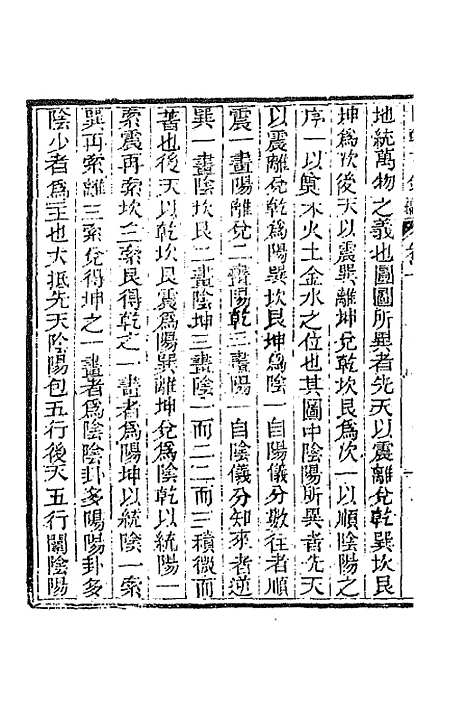 地統萬物之義也圓圖所異者先天以震離兌乾巽坎艮
坤爲次後天以震巽離坤兌乾坎艮爲次一以順陰陽之
序一以奠木火土金水之位也其圖中陰陽所異者先天
以震離兌乾爲陽巽坎艮坤爲陰一自陽儀分數往者順
震一畫陽離兌二畫陽乾三畫陽一自陰儀分知來者逆
巽一畫陰坎艮二畫陰坤三畫陰一而二二而三積微而
著也後天以乾坎艮震爲陽巽離坤兌爲陰乾以統陽一
索震再索坎三索艮得乾之一畫者爲陽坤以統陰一索
巽再索離三索兌得坤之一畫者爲陰陰卦多陽陽卦多
陰少者爲主也大抵先天陰陽包五行後天五行闡陰陽